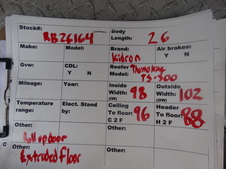 Stock#: RB26164 Body Length: 26
Make: Model: Brand: Kidron Air brakes: Y N
Gvw: CDL: Y N Reefer Model: Thermo King TS-500
Mileage: Year: Inside Width: 98 (IW) Outside Width: 102 (OW)
Temperature range: Elect. Stand by: Ceiling To floor: 96 C 2 F Header To floor: 88 H 2 F
Other: Roll up door
Other: Extruded floor